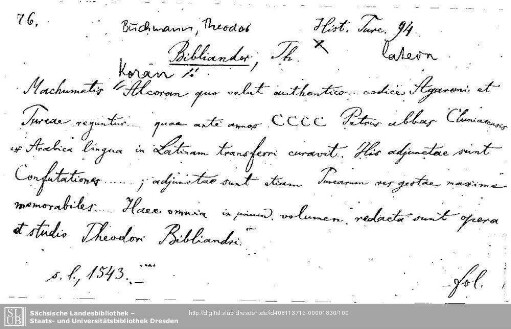 76. Buchmann, Theodor Hist. Turc. 94
Bibliander, Th. x Latein
Koran
Machumetis Alcoran quo velut authentico codice Agareni et
Turcae reguntur quae ante annos CCCC Petrus abbas Cluniacensis
ex Arabica lingua in Latinam transferri curavit. His adjunctae sunt
Confutationes ......; adjunctae sunt etiam Turcarum res gestae maxime
memorabiles... Haec omnia in volumen redacta sunt opera
et studio Theodori Bibliandri.
s. l., 1543. fol.
SLUB
Sächsische Landesbibliothek –
Staats- und Universitätsbibliothek Dresden